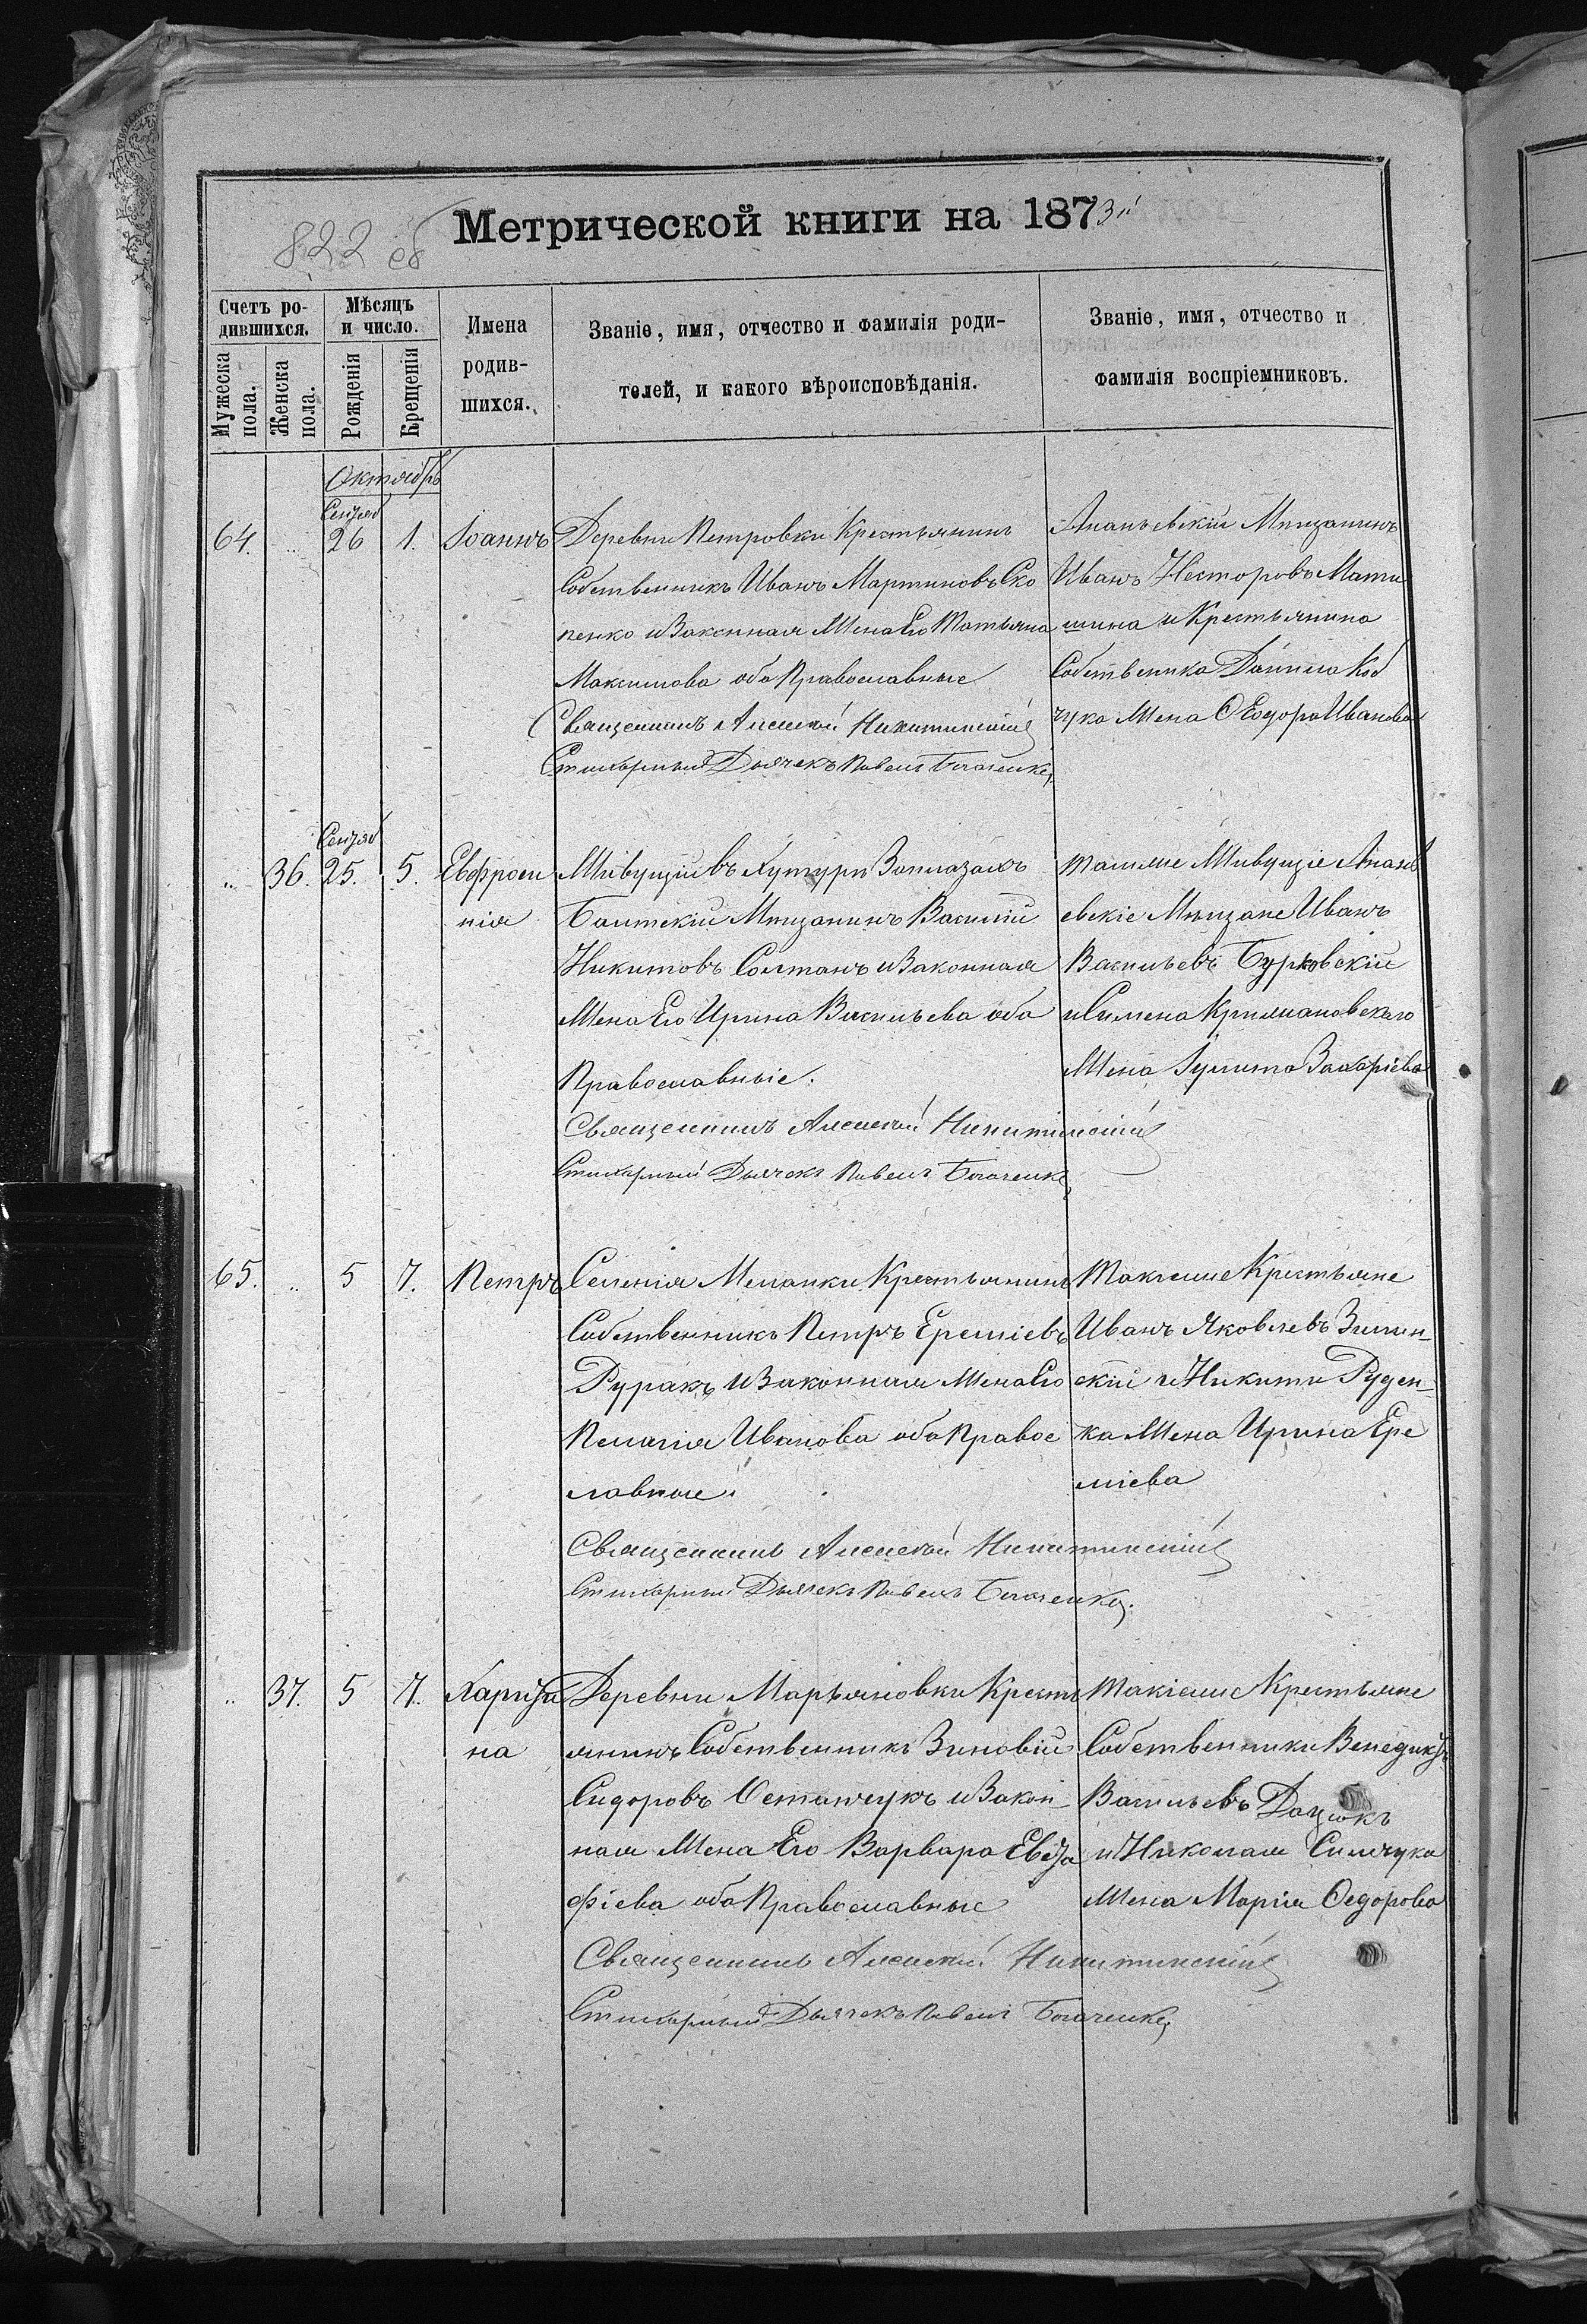 822 об
Метрической книги на 1873й
Счетъ ро-
дившихся.
Мужеска
пола.
Женска
пола.
Мѣсяцъ
и число.
Рожденія
Крещенія
Имена
родив-
шихся.
Званіе, имя, отчество и фамилія роди-
телей, и какого вѣроисповѣданія.
Званіе, имя, отчество и
фамилія воспріемниковъ.
Октябрь
Сентяб
64. .. 26 1. Іоаннъ
Деревни Петровки Крестьянинъ
Собственникъ Иванъ Мартиновъ Ско
пенко и Законная Жена Его Татьяна
Максимова оба Православные
Священникъ Алексей Никитинскій
Стихарный Дьячекъ Павелъ
Ананьевскій Мѣщанинъ
Иванъ Несторовъ Мати
шина и Крестьянина
Собственика Данила Коб
чука Жена Ѳеодора Иванова
Сентяб
.. 36. 25. 5. Евфроси
нія
Живущій въ Хуторѣ
Балтскій Мѣщанинъ Василій
Никитовъ Солтанъ и Законная
Жена Его Ирина Васильева оба
Православныіе.
Священникъ Алексей Никитинскій
Стихарный Дьячекъ Павелъ
Тамже Живущіе Анань
евскіе Мѣщане Иванъ
Васильевъ Бурковскій
и Симена Крижановскаго
Жена Іулита Захаріева
65. .. 5 7. Петръ
Селенія Меланки Крестьянинъ
Собственникъ Петръ Ереміевъ
Руракъ и Законная Жена Его
Пелагія Иванова оба Правос
лавные.
Священникъ Алексей Никитинскій
Стихарный Дьячекъ Павелъ
Такіеже Крестьяне
Иванъ Яковлевъ Зилин-
скій и Никити Руден-
ка Жена Ирина Ере
міева
.. 37. 5 7. Харити
на
Деревни Марьяновки Кресть
янинъ Собственникъ Зиновій
Сидоровъ Остапчукъ и Закон-
ная Жена Его Варвара Евста
фіева оба Православные
Священникъ Алексей Никитинскій
Стихарный Дьячекъ Павелъ
Такіеже Крестьяне
Собственники Венедиктъ
Васильевъ Дацюкъ
и Николая Симчука
Жена Марія Ѳедорова